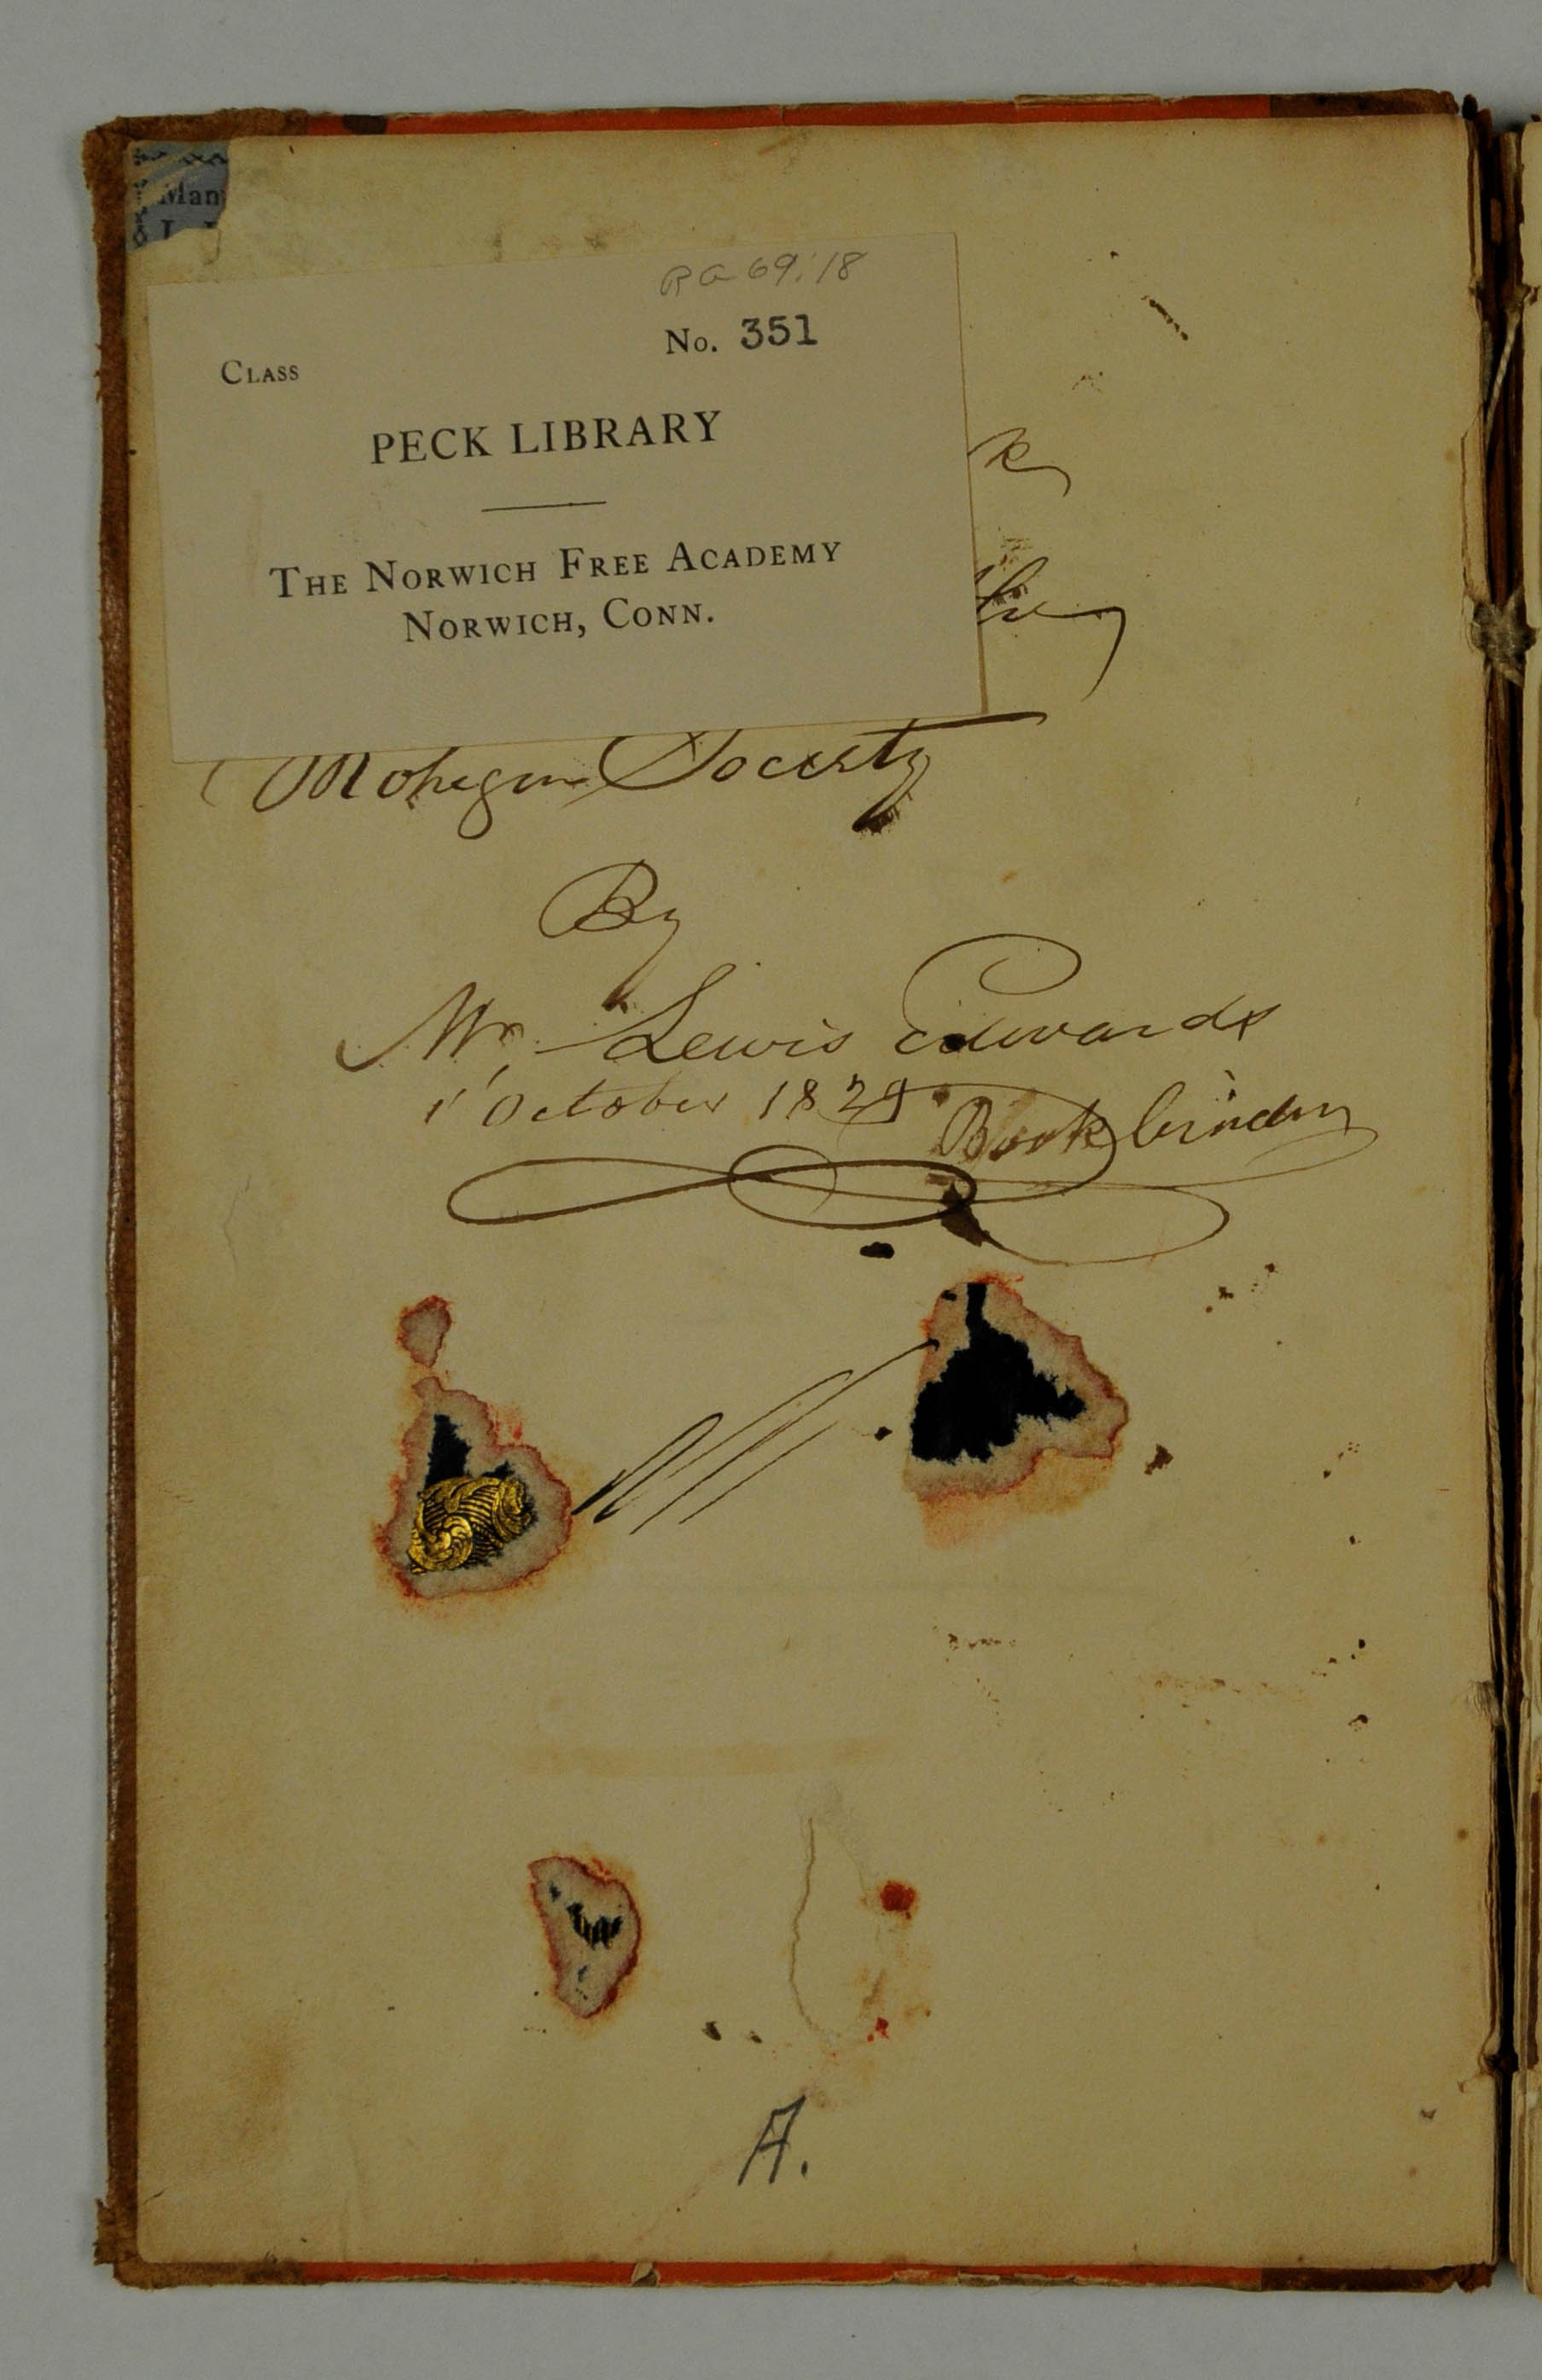 Man
RG 69:18
No. 351
Class
PECK LIBRARY
The Norwich Free Academy
Norwich, Conn.
Mohegan Society
By
Mr. Lewis Edwards
1' October 1829
Book binder
A.